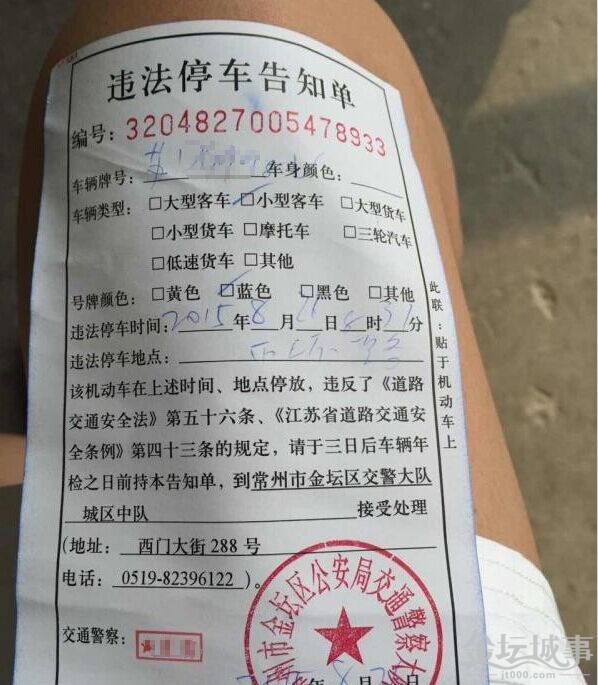 违法停车告知单
编号：3204827005478933
车辆牌号：苏 车身颜色：
车辆类型：□大型客车 □小型客车 □大型货车
□小型货车 □摩托车 □三轮汽车
□低速货车 □其他
号牌颜色：□黄色 □蓝色 □黑色 □其他
违法停车时间：2015年8月21日8时31分
违法停车地点：
该机动车在上述时间、地点停放，违反了《道路
交通安全法》第五十六条、《江苏省道路交通安
全条例》第四十三条的规定，请于三日后车辆年
检之日前持本告知单，到常州市金坛区交警大队
城区中队 接受处理
(地址：西门大街288号
电话：0519-82396122)。
交通警察：
年8月2日
此联：贴于机动车上
州市金坛区公安局交通警察大
金坛城事
jt000.com